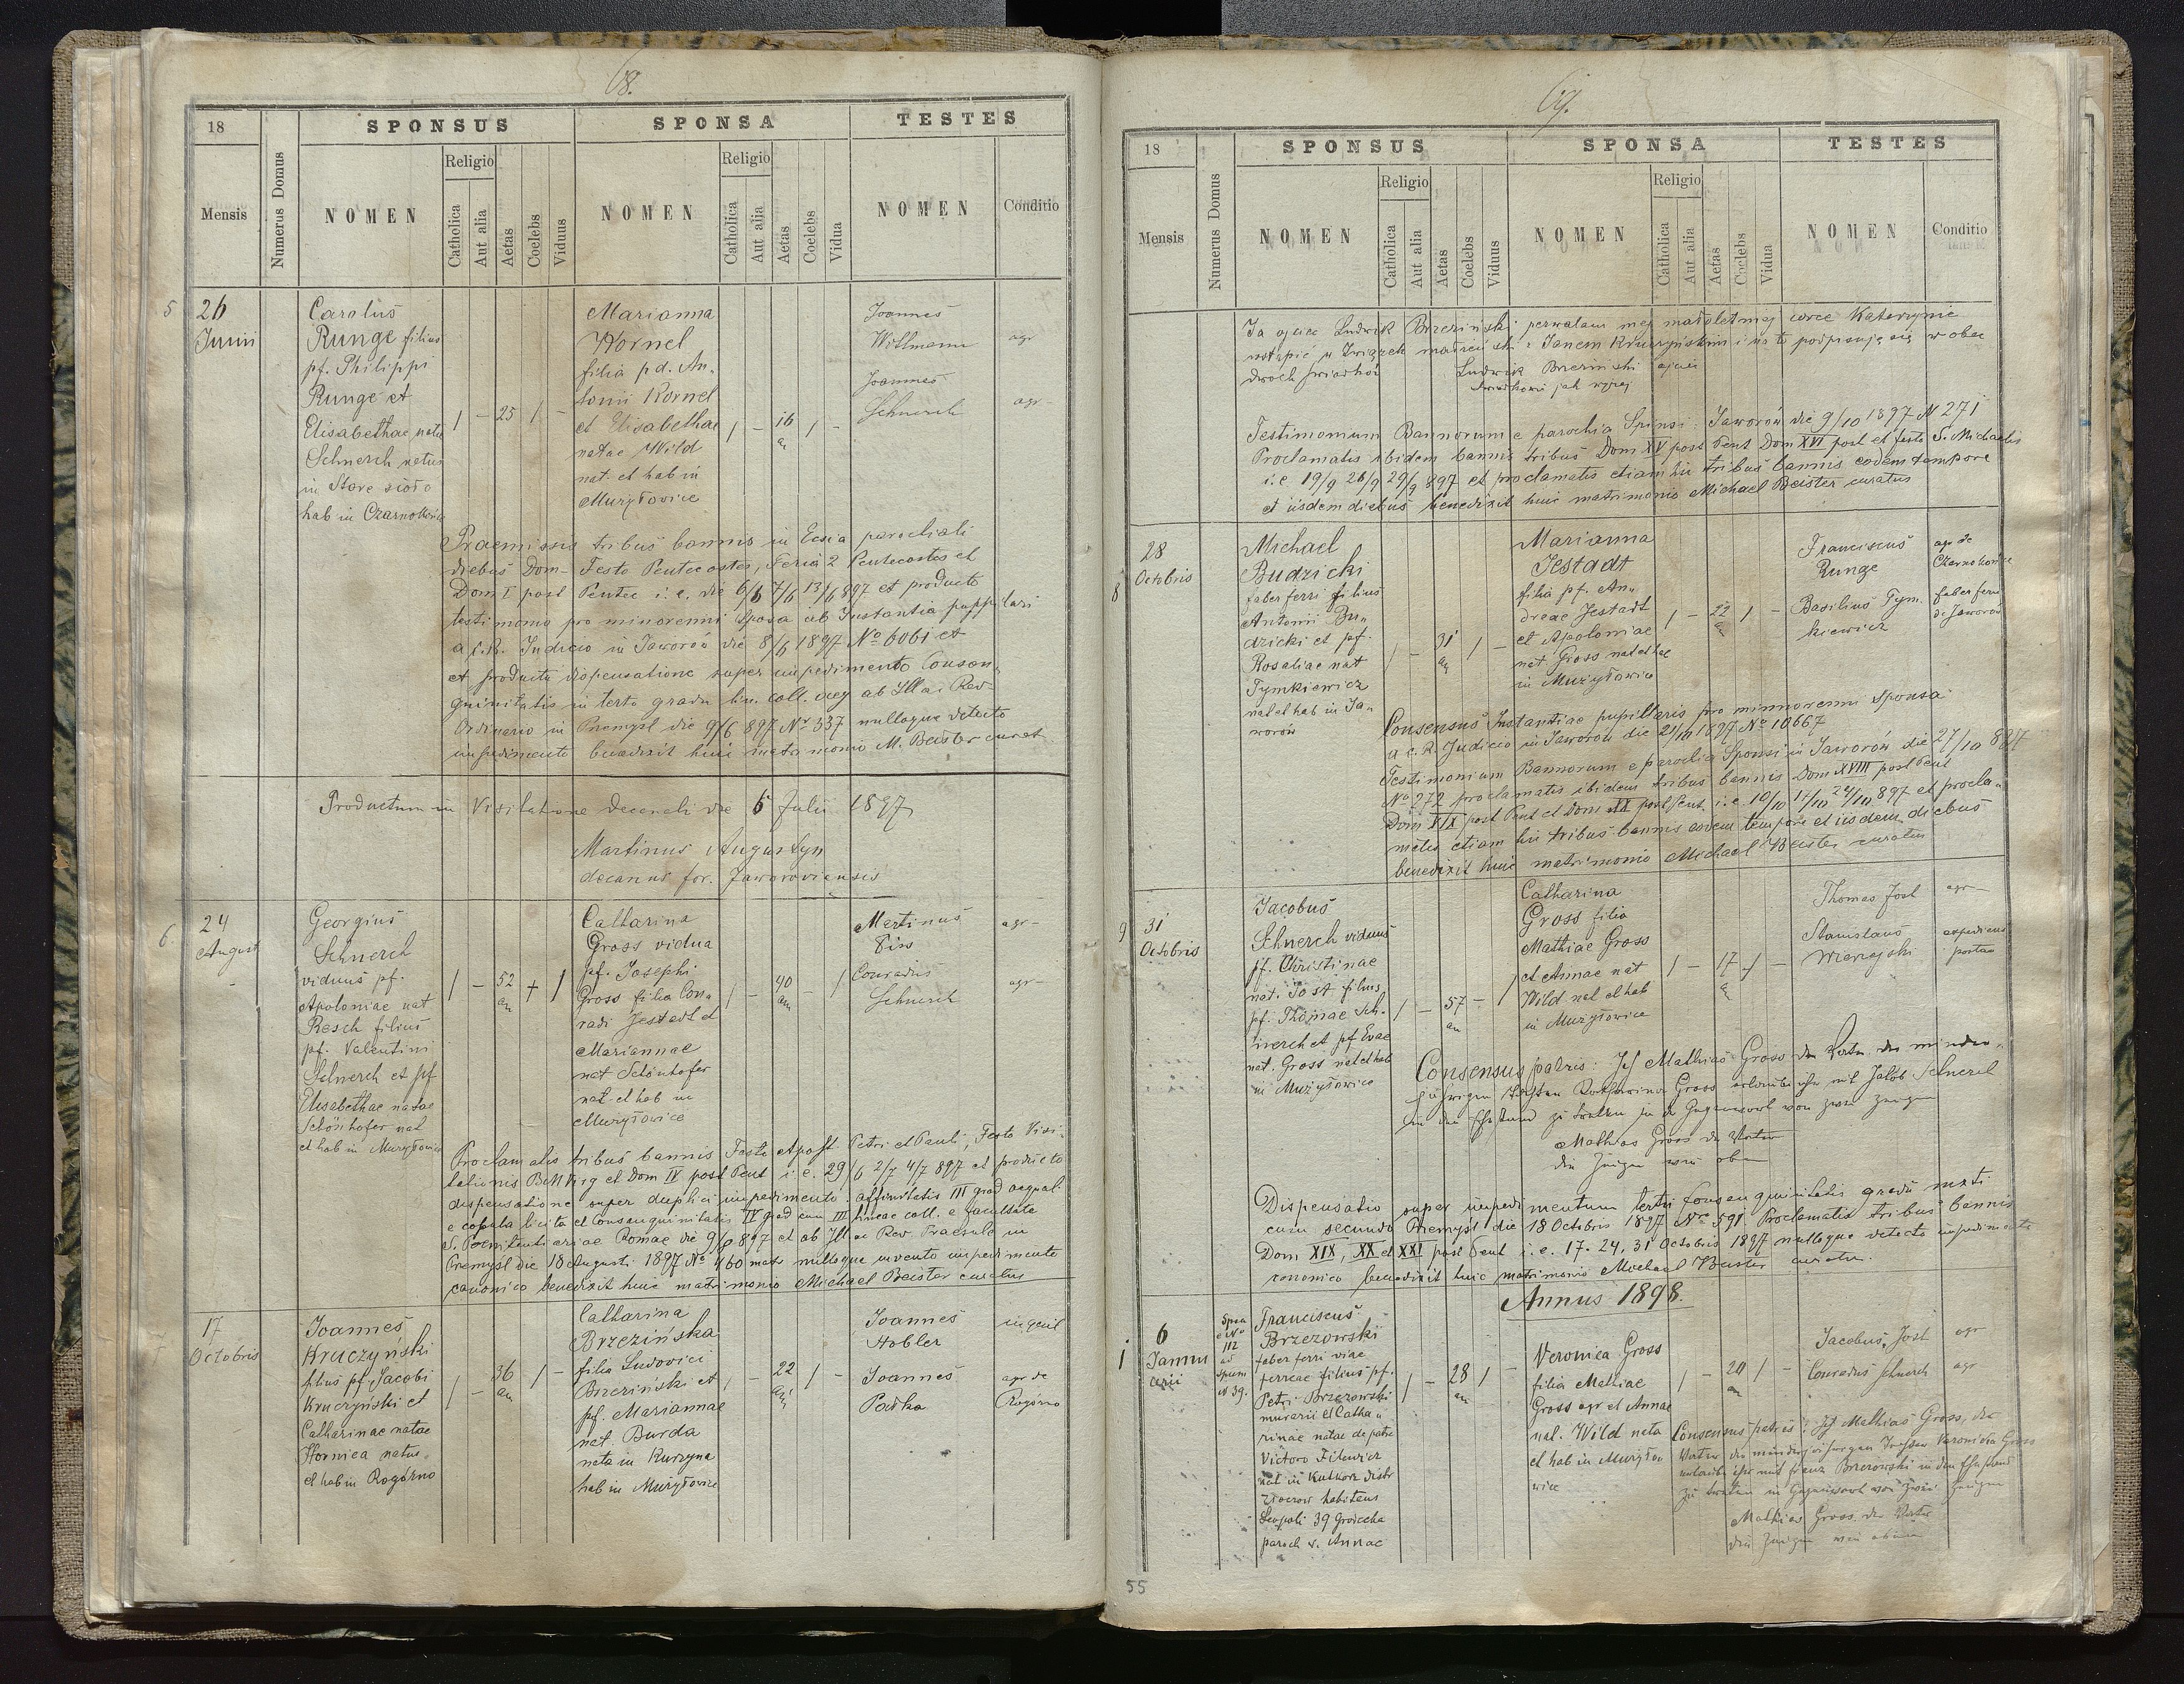 68.
18
SPONSUS
SPONSA
TESTES
Mensis
Numerus Domus
NOMEN
Religio
Catholica
Aut alia
Aetas
Coelebs
Viduus
NOMEN
Religio
Catholica
Aut alia
Aetas
Coelebs
Vidua
NOMEN
Conditio
5
26
Junii
Carolus
Runge filius
pf. Philippi
Runge et
Elisabethae natae
Schnerch natus
in Stare sioło
hab in
1 – 25 1 –
Marianna
Kornel
filia p. d. An„
tonii Kornel
et Elisabethae
natae Wild
nat. et hab in
Mużyłowice
1 – 16 1 –
Joannes
Willmann
agr
Joannes
Schnerch
agr –
Praemissis tribus bannis in Eccia parochiali
diebus Dom- Festo Pentecostes, Feria 2 Pentecostes et
Dom I post Pentec i. e. die 6/6 7/6 13/6 897 et producto
testimonio pro minorenni Sposa ab Instantia puppilari
a c. R. Judicio in Jaworów die 8/6 1897 No 6061 et
et producta dispensatione super impedimento Consan„
guinitatis in tertio gradu lin. coll. aeq ab Illai Rev-
Ordinario in Premysl die 9/6 897 Nr 337 nulloque detecto
impedimento benedixit huic matrimonio M. Beister curat
Productum in Visitatione decanali die 5 Julii 1897
Martinus Augustyn
decanus for. Jaworoviensis
6
24
August
Georgius
Schnerch
viduus pf.
Apoloniae nat
Resch filius
pf. Valentini
Schnerch et pf
Elisabethae natae
Schönhofer nat
et hab in Mużyłowice
1 – 52 an + 1
Catharina
Gross vidua
pf. Josephi
Gross filia Con„
radi Jestadt et
Mariannae
nat Schönhofer
nat. et hab in
Mużyłowice
1 – 40 an – 1
Martinus
agr –
Conradus
Schnerch
agr –
Proclamatis tribus bannis Festo Apost. Petri et Pauli, Festo Visi-
tationis BMVirg et Dom IV post Pent i. e. 29/6 2/7 4/7 897 et producto
dispensatione super duplici impedimento: affinitatis III grad aequal.
e copula licita et Consanguinitatis IV grad cum III lineae coll. e facultate
S. Poenitentiariae Romae die 9/8 897 et ab Illmo ac Rev Praesule in
Premysl die 18 Augusti 1897 No 460 matr nulloque invento impedimento
canonico benedixit huic matrimonio Michael Beister curatus
7
17
Octobris
Joannes
Kruczyński
filius pf Jacobi
Kruczyński et
Catharinae natae
Hornica natus
et hab in Rogóżno
1 – 36 an 1 –
Catharina
Brzezińska
filia Ludovici
Brzeziński et
pf. Mariannae
nat. Burda
nata in Kurzyna
hab in Mużyłowice
1 – 22 an 1 –
Joannes
Hobler
inquil
Joannes
agr de
Rogóżno
69.
18
SPONSUS
SPONSA
TESTES
Mensis
Numerus Domus
NOMEN
Religio
Catholica
Aut alia
Aetas
Coelebs
Viduus
NOMEN
Religio
Catholica
Aut alia
Aetas
Coelebs
Vidua
NOMEN
Conditio
Ja ojciec Ludwik Brzeziński pozwalam mej małoletniej córce Katarzynie
wstąpić w Związek małżeński z Janem Kruczyńskim i na to podpisuję się w obec
dwóch świadków
Ludwik Brzeziński ojciec
świadkowie jak wyżej
Testimonium Bannorum e parochia Sponsi: Jaworów die 9/10 1897 N 271
Proclamatis ibidem bannis tribus Dom XV post Pent Dom XVI post et festo S. Michaelis
i. e 19/9 26/9 29/9 897 et proclamatis etiam hic tribus bannis eodem tempore
et iisdem diebus benedixit huic matrimonio Michael Beister curatus
8
28
Octobris
Michael
Budzicki
faber ferri filius
Antonii Bu„
dzicki et pf.
Rosaliae nat
Tymkiewicz
nat et hab in Ja„
worów
1 – 31 an 1 –
Marianna
Jestadt
filia pf. An„
dreae Jestadt
et Apoloniae
nat Gross nat et hab
in Mużyłowice
1 – 22 an 1 –
Franciscus
Runge
agr de
Basilius Tym„
kiewicz
faber ferri
de Jaworów
Consensus Instantiae pupillaris pro minorenni Sponsa
a c. R. Judicio in Jaworów die 21/10 1897 No 10667
Testimonium Bannorum e parochia Sponsi in Jaworów die 27/10 897
No 272 proclamatis ibidem tribus bannis Dom XVIII post Pent
Dom XIX post Pent et Dom XX post Pent i. e. 10/10 17/10 24/10 897 et procla„
matis etiam hic tribus bannis eodem tempore et iisdem diebus
benedixit huic matrimonio Michael Beister curatus
9
31
Octobris
Jacobus
Schnerch viduus
pf. Christinae
nat. Jost filius
pf. Thomae Sch„
nerch et pf Evae
nat. Gross nat et hab
in Mużyłowice
1 – 57 an – 1
Catharina
Gross filia
Mathiae Gross
et Annae nat
Wild nat et hab
in Mużyłowice
1 – 17 1 –
Thomas Jost
agr –
Stanislaus
Wierzejski
expediens
postam
Consensus patris: Ich Mathias Gross der Vater der minder„
jährigen Tochter Katharina Gross erlaube ihr mit Jakob Schnerch
in den Ehestand zu treten in der Gegenwart von zwei Zeugen
Mathias Gross der Vater
die Zeugen wie oben
Dispensatio super impedimentum tertii Consanguinitatis gradu mxti
cum secundo Premysl die 18 Octobris 1897 No 591 Proclamatis tribus bannis
Dom XIX, XX et XXI post Pent i. e. 17. 24. 31 Octobris 1897 nulloque detecto impedimento
canonico benedixit huic matrimonio Michael Beister curatus
Annus 1898.
1
6
Januarii
112
N 39.
Franciscus
Brzezowski
faber ferri viae
ferreae filius pf.
Petri Brzezowski
murarii et Catha„
rinae natae de patre
Victoro Filewicz
nat in Kutkorz distr
Złoczow habitans
Leopoli 39 Grodecka
paroch s. Annae
1 – 28 an 1 –
Veronica Gross
filia Mathiae
Gross agr et Annae
nat. Wild nata
et hab in Mużyło„
wice
1 – 20 an 1 –
Jacobus Jost
agr
Conradus Schnerch
agr
Consensus patris: Ich Mathias Gross, der
Vater der minderjährigen Tochter Veronica Gross
erlaube ihr mit Franz Brzezowski in den Ehestand
zu treten in Gegenwart von zwei Zeugen
Mathias Gross der Vater
die Zeugen wie oben
55